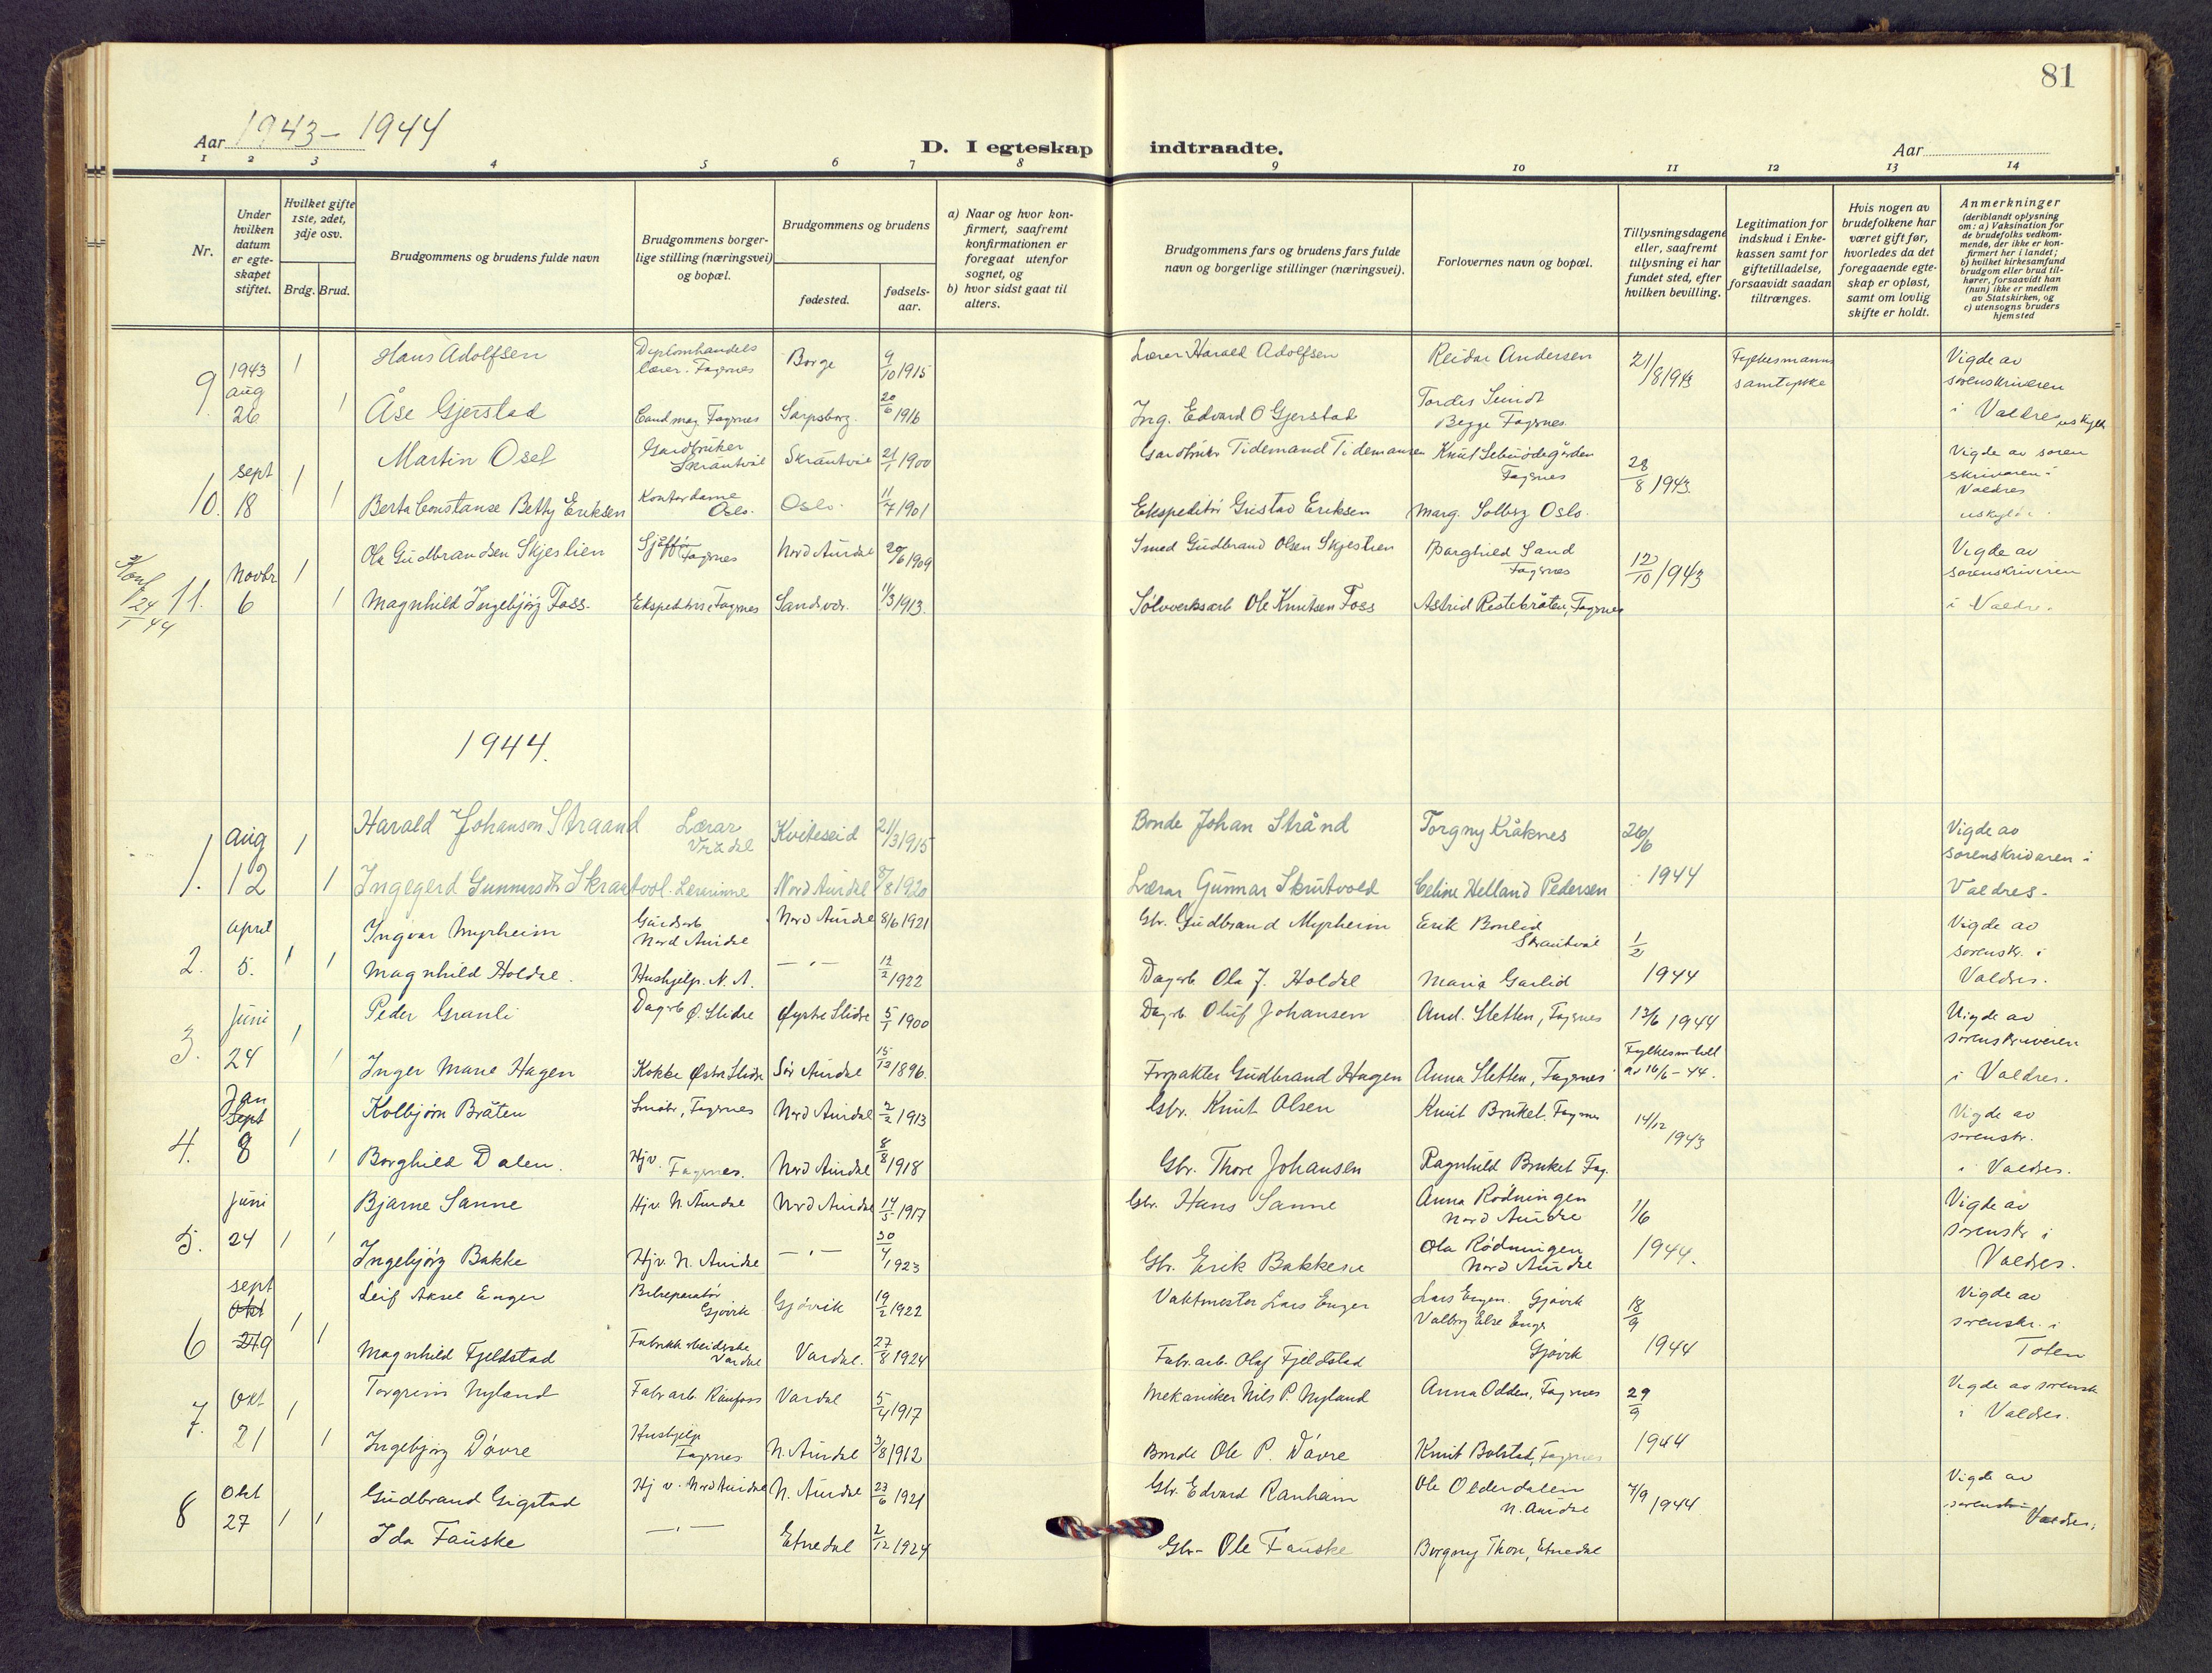 81
Aar 1943 – 1944
D. I egteskap indtraadte.
Aar
1 2 3 4 5 6 7 8 9 10 11 12 13 14
Nr.
Under hvilken datum er egteskapet stiftet.
Hvilket gifte 1ste, 2det, 3dje osv.
Brdg. Brud.
Brudgommens og brudens fulde navn
Brudgommens borgerlige stilling (næringsvei) og bopæl.
Brudgommens og brudens
fødested.
fødselsaar.
a) Naar og hvor konfirmert, saafremt konfirmationen er foregaat utenfor sognet, og
b) hvor sidst gaat til alters.
Brudgommens fars og brudens fars fulde navn og borgerlige stillinger (næringsvei).
Forlovernes navn og bopæl.
Tillysningsdagene eller, saafremt tillysning ei har fundet sted, efter hvilken bevilling.
Legitimation for indskud i Enkekassen samt for giftetilladelse, forsaavidt saadan tiltrænges.
Hvis nogen av brudefolkene har været gift før, hvorledes da det foregaaende egteskap er opløst, samt om lovlig skifte er holdt.
Anmerkninger (deriblandt oplysning om: a) Vaksination for de brudefolks vedkommende, der ikke er konfirmert her i landet; b) hvilket kirkesamfund brudgom eller brud tilhører, forsaavidt han (hun) ikke er medlem av Statskirken, og c) utensogns bruders hjemsted
9. 1943 aug 26 1 Hans Adolfsen Diplomhandels lærer. Fagernes Borge 9/10 1915 Lærer Harald Adolfsen Reidar Andersen 21/8 1943 Fylkesmanns samtykke Vigde av sorenskriveren
1 Åse Gjerstad Cand mag Fagernes Sarpsborg. 20/6 1916 Ing. Edvard O Gjerstad Tordis Sundt Begge Fagernes i Valdres uskyldt
10. sept 18 1 Martin Osel Gardbruker Skrautvål Skrautvål 21/1 1900 Gardbruker Tidemand Tidemansen Fagernes 28/8 1943. Vigde av soren skrivaren i
1 Berta Constanse Betty Eriksen Kontordame Oslo. Oslo. 11/7 1901 Ekspeditør Gustav Eriksen Marg. Solberg Oslo. Valdres uskyldt.
24/1 44 11. Novbr 6 1 Ola Gudbrandsen Skjeslien Sjåffør Fagernes Nord Aurdal 20/6 1909 Smed Gudbrand Olsen Skjeslien Borghild Sand Fagernes 12/10 1943 Vigde av sorenskriveren
1 Magnhild Ingebjørg Foss. Ekspeditrise Fagernes Sandsvær. 11/3 1913. Sølvverksarb Ole Knutsen Foss Astrid Restebråten, Fagernes i Valdr.
1944.
1. aug 12 1 Harald Johanson Straand Lærar Vrådal Kviteseid 21/3 1915 Bonde Johan Strånd Torgny Kråknes 26/6 Vigde av sorenskrivaren i
1 Ingegerd Gunnarsdtr Skrautvol. Lærarinne Nord Aurdal 8/8 1920 Lærar Gunnar Skrutvold Celine Helland Pedersen 1944 Valdres.
2. april 5. 1 Ingvar Myrheim Gardsarb Nord Aurdal Nord Aurdal 8/6 1921 Gbr. Gudbrand Myrheim Erik Bonlid Skrautvål 1/2 Vigde av sorenskr. i
1 Magnhild Holdal. Hushjelp. N. A. —„— 12/2 1922 Dagarb Ola J. Holdal Maria Garlid 1944 Valdres.
3. juni 24 1 Peder Granli Dagarb Ø. Slidre Øystre Slidre 5/1 1900 Dagarb. Oluf Johansen And. Sletten, Fagernes 13/6 1944 Vigde av sorenskriveren
1 Inger Marie Hagen Kokke Østre Slidre Sør Aurdal 15/12 1896. Forpakter Gudbrand Hagen Anna Sletten, Fagernes Fylkesm till av 16/6 – 44. i Valdres.
4. Jan Sept 8 1 Kolbjørn Bråten Småbr., Fagernes Nord Aurdal 2/2 1913 Gbr. Knut Olsen Knut Bruket. Fagernes 14/12 1943 Vigde av sorenskr.
1 Borghild Dalen. Hjv. Fagernes. Nord Aurdal 8/8 1918 Gbr. Thore Johansen Ragnhild Bruket Fag. i Valdres.
5. juni 24 1 Bjarne Sanne Hjv. N. Aurdal Nord Aurdal 14/5 1917 Gbr. Hans Sanne Anna Rødningen Nord Aurdal 1/6 Vigde av sorenskr i
1 Ingebjørg Bakke Hjv. N. Aurdal —„— 30/4 1923 Gbr. Erik Bakkene Ola Rødningen Nord Aurdal 1944. Valdres.
6 sept Okt 9 1 Leif Aksel Enger Bilreparatør Gjøvik Gjøvik 19/2 1922 Vaktmester Lars Enger Lars Enger. Gjøvik 18/9 Vigde av sorenskr. i
1 Magnhild Fjeldstad Fabrikkarbeiderske Vardal Vardal. 27/8 1924 Fabr.arb. Olaf Fjeldstad Valborg Else Enger Gjøvik 1944 Toten
7. Okt 21 1 Torgrim Nyland Fabr arb. Raufoss Vardal 5/4 1917 Mekaniker Nils P. Nyland Anna Odden, Fagernes 29/9 Vigde av sorensk
1 Ingebjørg Døvre Hushjelp Fagernes N. Aurdal 3/8 1912 Bonde Ole P. Døvre Knut Bolstad, Fagernes 1944 i Valdres.
8 Okt 27 1 Gudbrand Gigstad Hj v. Nord Aurdal N. Aurdal 23/6 1921 Gbr. Edvard Ranheim Ole Olderdalen N. Aurdal 7/9 1944 Vigde av
1 Ida Fauske —„— Etnedal 2/12 1924 Gbr. Ole Fauske Borgny Thon, Etnedal sorenskr i Valdres.